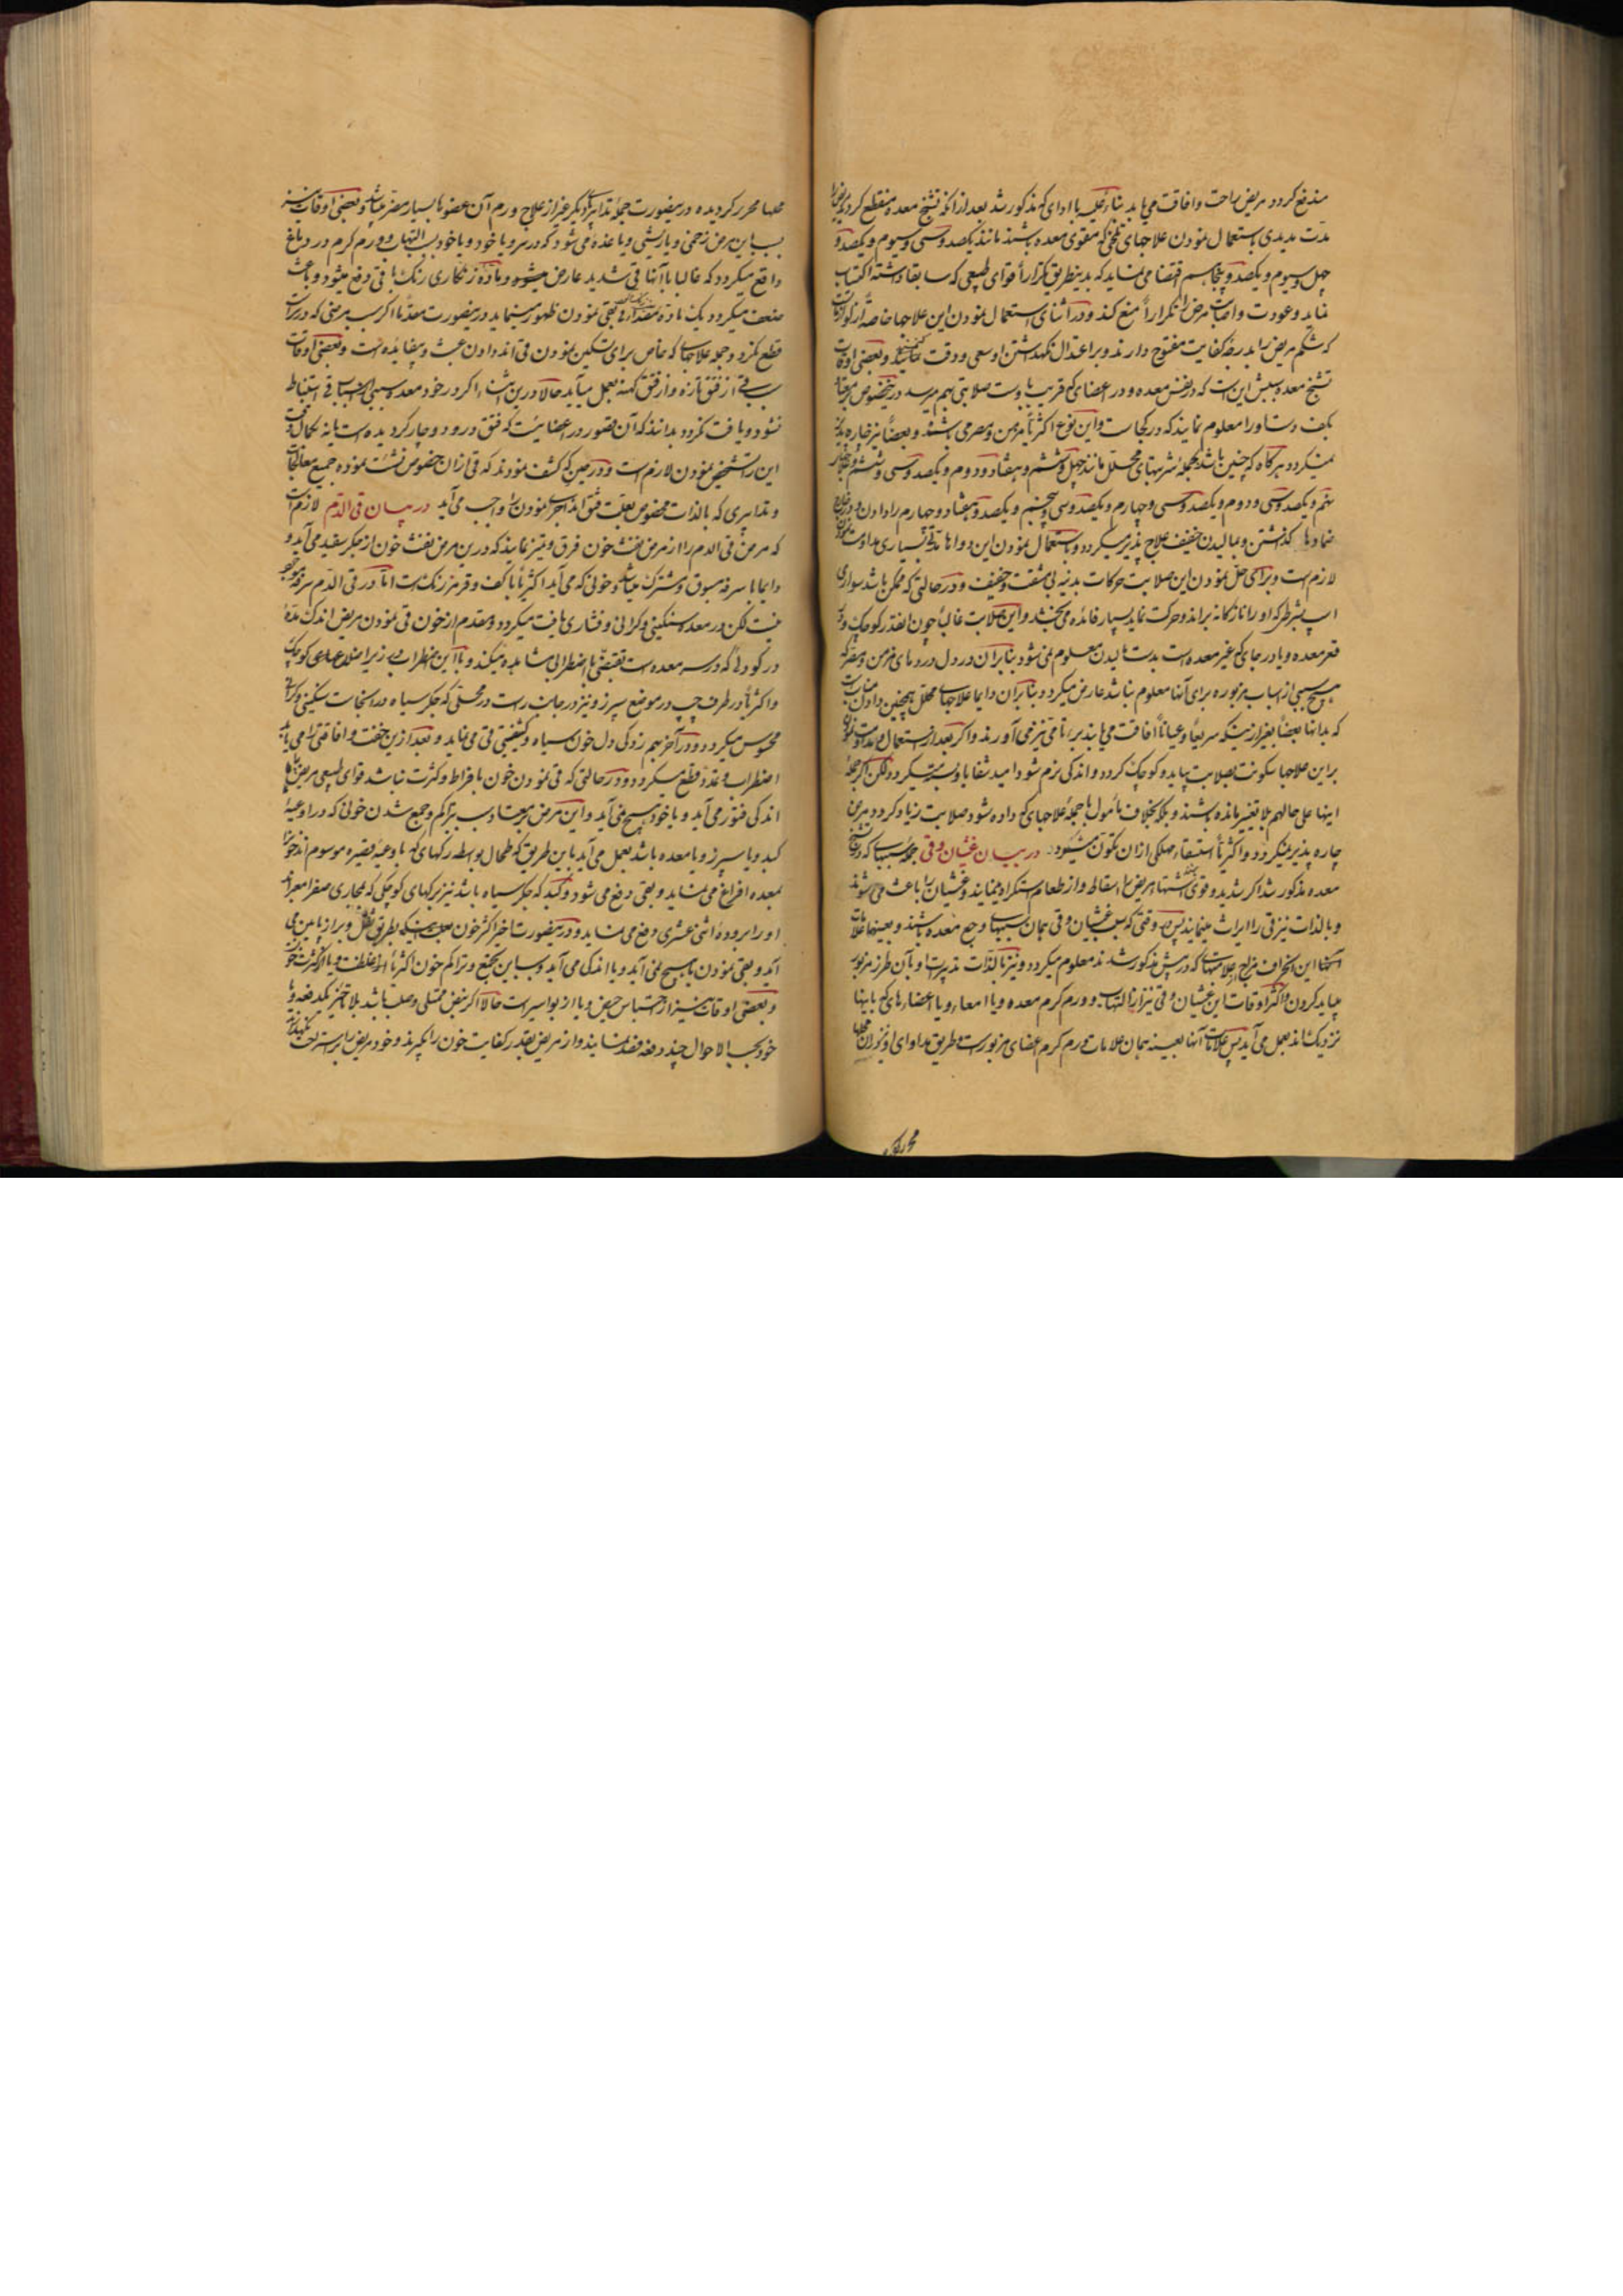 مندفع کردد مریض راحت وافاقت می یابد بناء علیه با ادای که مذکور شد بعد از آنکه تشنج معده منقطع کردد
مدت مدیدی باستعمال نمودن علاجهای تلخی که مقوی معده باشند مانند یکصد وسی وسیوم ویکصد و
چهل وسیوم ویکصد و پنجاهم اقتضا می نماید که بدینطریق تکرارا قوای طبیعی که سابقا داشته اکتساب
نماید وعودت واصابت مرض را تکرارا منع کند ودر اثنای استعمال نمودن این علاجها خاصة
که شکم مریض را بدرجه کفایت مفتوح دارند وبر اعتدال نکهداشتن اوسعی ودقت نمایند وبعضی اوقات
تشنج معده سببش این است که در نفس معده ودر اعضای که قریب باوست صلابتی بهم میرسد درینخصوص
بکف دست اورا معلوم نمایند که در کجاست واین نوع اکثریا مزمن ومصر می باشد وبعضا نیز چاره پذیر
نمیکردد هرکاه که چنین باشد بجمله شربتهای محلل مانند چهل وششم وهفتاد ودوم ویکصد وسی وششم
نهم ویکصد وسی ودوم ویکصد وسی وچهارم ویکصد وسی وپنجم ویکصد وهفتاد وچهارم را دادن
ضمادها گذاشتن ومالیدن خفیف علاج پذیر میکردد وباستعمال نمودن این دواها مدت بسیاری مداومت نمودن
لازم است وبرای حل نمودن این صلابت حرکات بدنیه بی مشقت وخفیف ودر حالتی که ممکن باشد سواری
اسب بشرطی که اورا نازکانه براند وحرکت نماید بسیار فائده می بخشد واین صلابت غالبا چون انقدر کوچک و
قعر معده ویا در جای که غیر معده است بدست مالیدن معلوم نمی شود بنابران در دل دردهای مزمن ومصر که
هیچ سببی از اسباب مزبوره برای آنها معلوم نباشد عارض میکردد وبنابران دایما علاجهای محلل همچنین دادن
که بدانها بعضا بغیر ازینکه سریعا وعیانا افاقت می یابند برءتام نیز می آورند واکر بعد از استعمال ومداومت نمودن
براین علاجها سکونت بصلابت بیاید وکوچک کردد واندکی نرم شود امید شفا یابد وبرء میکردد لکن اکر جمله
اینها علی حالهم بلا تغییر مانده باشند وبلکه بخلاف مامول با جمله علاجهای که داده شود صلابت زیاد کردد مرض
چاره پذیر نمیکردد واکثریا استسقاء مهلکی از ان تکون میشود در بیان غثیان وقی جمله سببهای که در تشنج
معده مذکور شد اکر شدید وقوی باشند اشتهای مریض را اسقاط واز طعام استکراه مینمایند وغثیان را باعث می شوند
وبالذات نیز قی را ایراث مینمایند پس وقتی که سبب غثیان وقی همان سببهای وجع معده باشند وبعینها علامات
این انحراف مزاج بعلامتهای که در پیش مذکور شدند معلوم میکردد ونیز بالذات تدبیرات او بآن طرز مزبور
میباید کردن واکثر اوقات این غثیان وقی نیز از التهاب وورم کرم معده ویا امعاء ویا اعضاءهای که باینها
نزدیک اند بعمل می آید پس علامات آنها بعینه همان علامات ورم کرم اعضای مزبورست وطریق مداوای او نیز در ان محلها
محررکر
محلها محرر کردیده درینصورت جمله تدابیرهای دیکر غیر از علاج ورم آن عضوها بسیار مضر میباشد وبعضی اوقات نیز
بسبب این مرض زخمی ویا ریشی ویا غده می شود که در سر ویا خود ویا خود بسبب التهاب وورم کرم در دماغ
واقع میکردد که غالبا با آنها قی شدید عارض میشود وماده زنکاری رنک با قی دفع میشود وباعث
ضعف میکردد یک ماده بقی نمودن ظهور مینماید درینصورت مقدما اکر سبب مرضی که در سرست
قطع نکردد جمله علاجهای که خاص برای تسکین نمودن قی اند دادن عبث وبیفایده است وبعضی اوقات
سبب قی از فتق تازه واز فتق کهنه بعمل میآید حالا درین اثناء اکر در خود معده سببی از اسباب قی استنباط
نشود ویافت نکردد بدانند که آن قصور در اعضائیست که فتق درو دوچار کردیده است یانه بکمال دقت
این را تشخیص نمودن لازم است ودر حینی که کشف نمودند که قی از ان خصوص نشئت نموده جمیع معالجات
وتدابیری که بالذات مخصوص بعلت فتق اند اجرای نمودن را واجب می آید در بیان قی الدم لازم است
که مرض قی الدم را از مرض نفث خون فرق وتمییز نمایند که درین مرض نفث خون از جکر سفید می آید و
دایما با سرفه مسبوق ومشترک میباشد وخونی که می آید اکثریا با کف وقرمز رنک است اما در قی الدم سرفه موجود
نیست لکن در معده سنکینی وکرانی وفشاری یافت میکردد ومقدم از خون قی نمودن مریض اندک مدة
در کودلی که در سر معده است بقبضتی باضطرابی مشاهده میکند وبا این اضطراب در زیر اضلاع های کوچک
واکثریا در طرف چپ در موضع سپرز ونیز در جانب راست در محلی که جکر سیاه در انجاست سنکینی وکرانی
محسوس میکردد ودر آخر بهم زدکی دل خون سیاه وکثیفی قی می نماید وبعد ازین خفت وافاقتی را می یابد
اضطراب وغدد قطع میکردد ودر حالتی که قی نمودن خون بافراط وکثرت نباشد قوای طبیعی مریض را
اندکی فتور می آید ویا خود هیچ نمی آید واین مرض بسبب تراکم وجمع شدن خونی که در اوعیه
کبد ویا سپرز ویا معده باشد بعمل می آید باین طریق که طحال بواسطه رکهای که باوعیه قصیره موسوم اند خون را
بمعده افراغ می نماید وبقی دفع می شود وکبد که جکر سیاه باشد نیز برکهای کوچکی که مجاری صفرا معبراند
اورا بروده اثنی عشری دفع می نماید ودرینصورت اخیر اکثر خون بطریق ثقل وبراز پایین می
آید وبقی نمودن یا هیچ نمی آید ویا اندکی می آید وسبب این تجمع وتراکم خون اکثریا از غلظت ویا از کثرت خون
وبعضی اوقات نیز از احتباس حیض ویا از بواسیر است حالا اکر نبض ممتلی وصلب باشد بلا تاخیر یکدفعه ویا
خود بحسب الاحوال چند دفعه فصد نمایند واز مریض بقدر کفایت خون را بکیرند وخود مریض را براستراحت نکهدارند